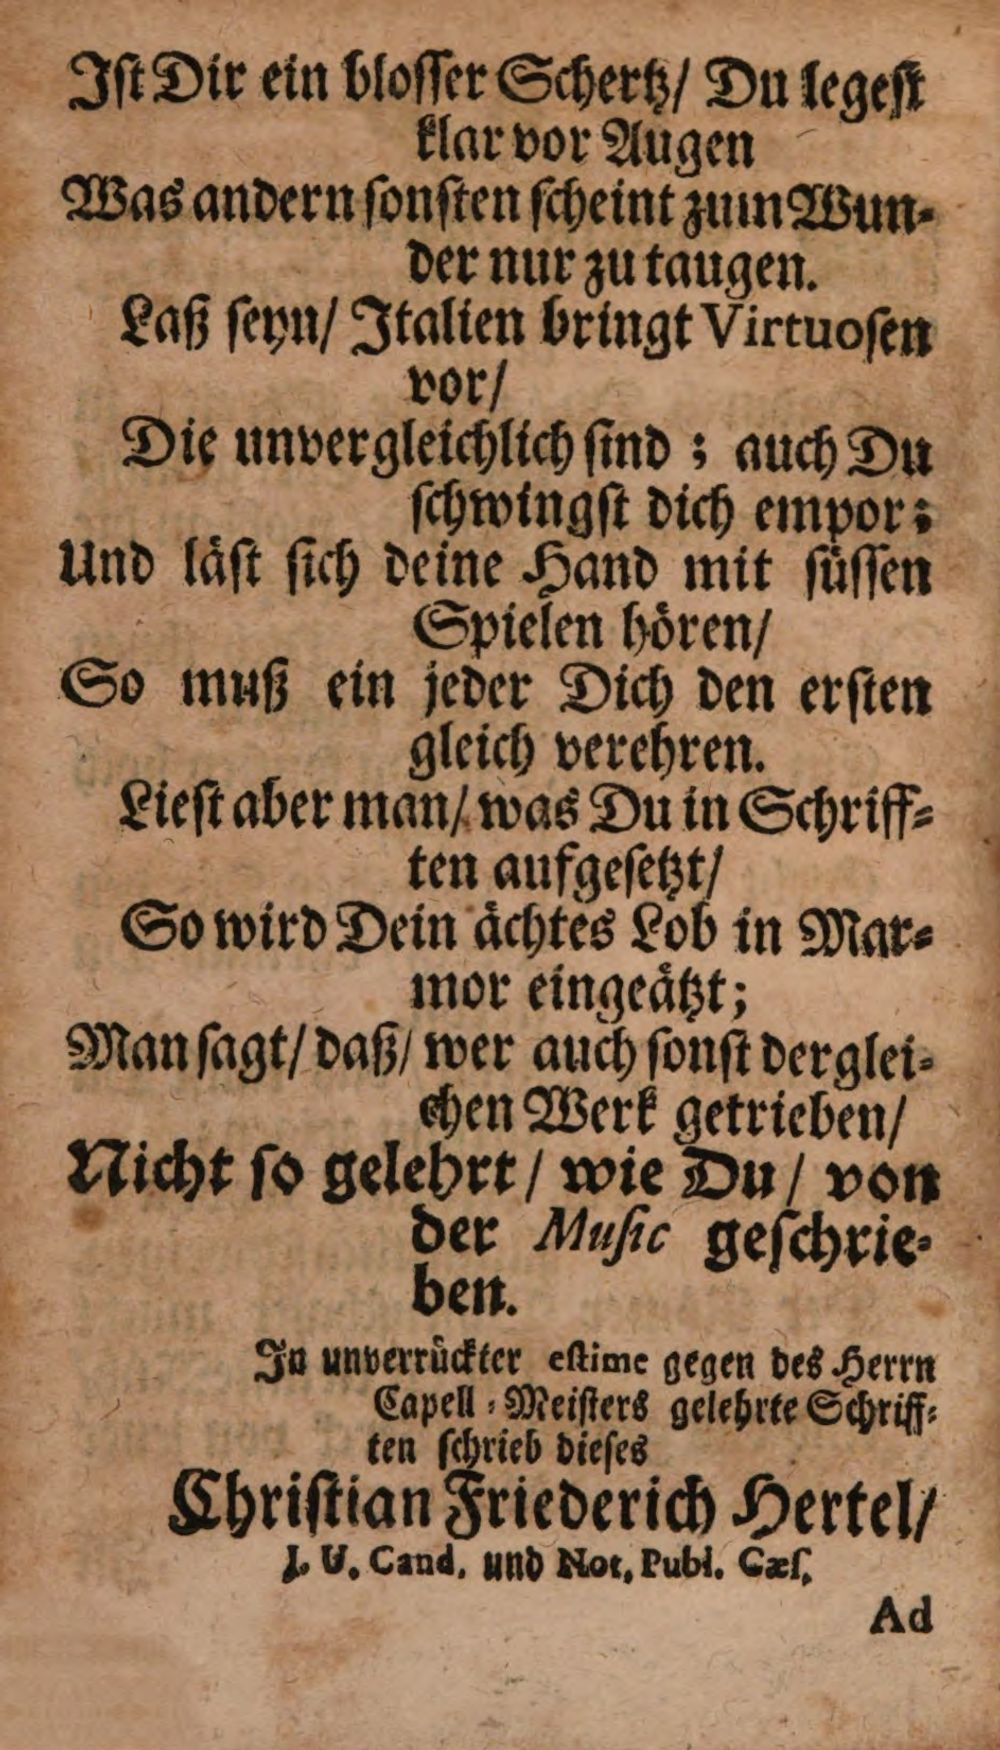 Iſt Dir ein bloſſer Schertz/ Du legeſt
klar vor Augen
Was andern ſonſten ſcheint zum Wun-
der nur zu taugen.
Laß ſeyn/ Italien bringt Virtuoſen
vor/
Die unvergleichlich ſind ; auch Du
ſchwingſt dich empor;
Und läſt ſich deine Hand mit ſüſſen
Spielen hören/
So muß ein jeder Dich den erſten
gleich verehren.
Lieſt aber man/ was Du in Schriff-
ten aufgeſetzt/
So wird Dein ächtes Lob in Mar-
mor eingeätzt;
Man ſagt/ daß/ wer auch ſonſt derglei-
chen Werk getrieben/
Nicht ſo gelehrt/ wie Du/ von
der Muſic geſchrie-
ben.
In unverrückter eſtime gegen des Herrn
Capell-Meiſters gelehrte Schriff-
ten ſchrieb dieſes
Chriſtian Friederich Hertel/
J. U. Cand. und Not. Publ. Cæſ.
Ad